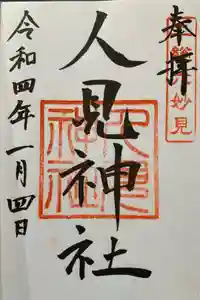 奉拝
妙見
人見神社
令和四年一月四日